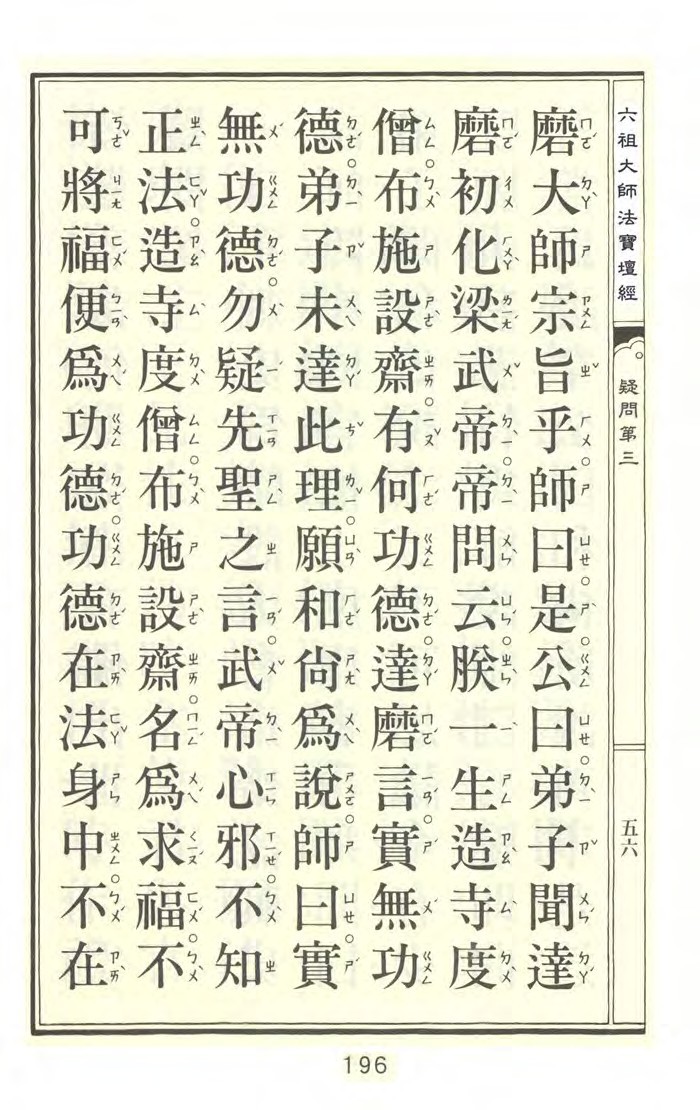 六祖大師法寶壇經
疑問第三
五六
磨大師宗旨乎。師曰。是。公曰。弟子聞達
磨初化梁武帝。帝問云。朕一生造寺度
僧。布施設齋。有何功德。達磨言。實無功
德。弟子未達此理。願和尚爲說。師曰。實
無功德。勿疑先聖之言。武帝心邪。不知
正法。造寺度僧。布施設齋。名爲求福。不
可將福便爲功德。功德在法身中。不在
196